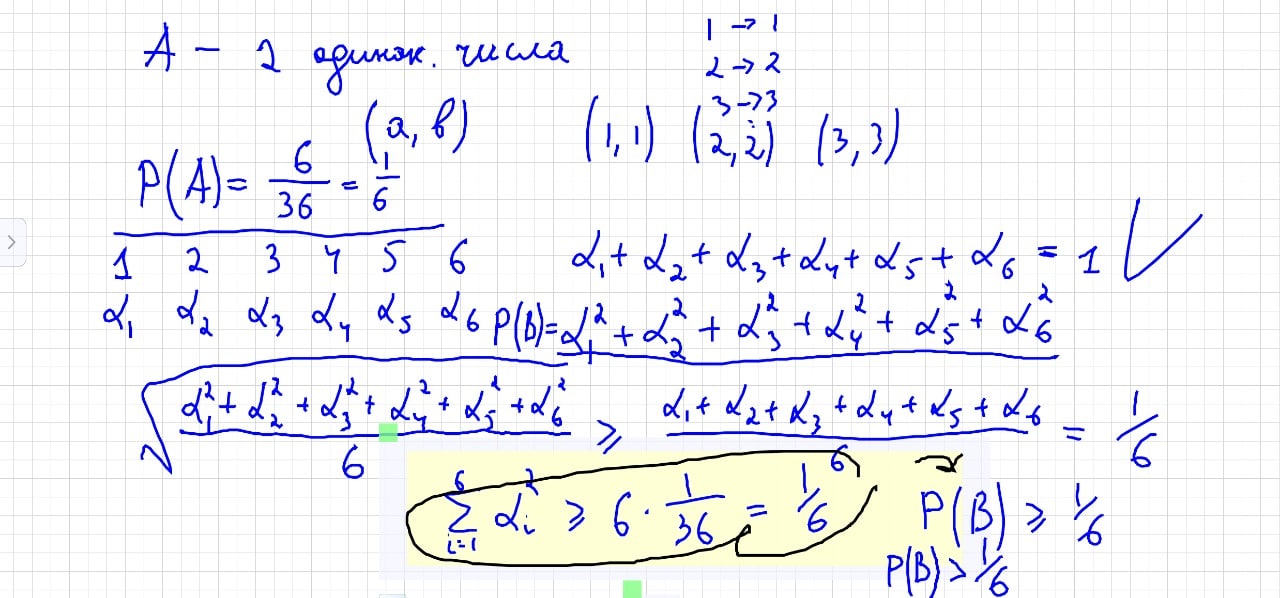 A – 2 одинак. числа
1 → 1
2 → 2
3 → 3
(a, b) (1,1) (2,2) (3,3)
P(A) = 6/36 = 1/6
1 2 3 4 5 6
α₁ α₂ α₃ α₄ α₅ α₆
α₁ + α₂ + α₃ + α₄ + α₅ + α₆ = 1
P(B) = α₁² + α₂² + α₃² + α₄² + α₅² + α₆²
√((α₁² + α₂² + α₃² + α₄² + α₅² + α₆²)/6) ⩾ (α₁ + α₂ + α₃ + α₄ + α₅ + α₆)/6 = 1/6
∑ᵢ₌₁⁶ αᵢ² ⩾ 6 · 1/36 = 1/6
P(B) ⩾ 1/6
P(B) > 1/6